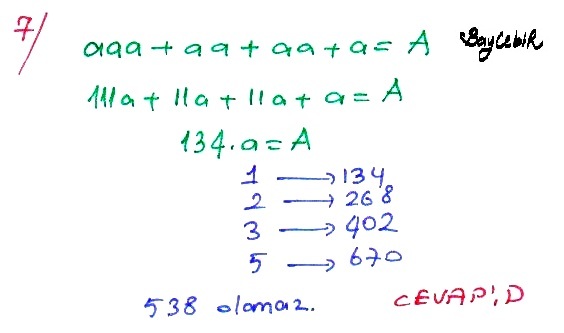 7/
aaa + aa + aa + a = A BayCebiR
111a + 11a + 11a + a = A
134.a = A
1 → 134
2 → 268
3 → 402
5 → 670
538 olamaz. CEVAP: D